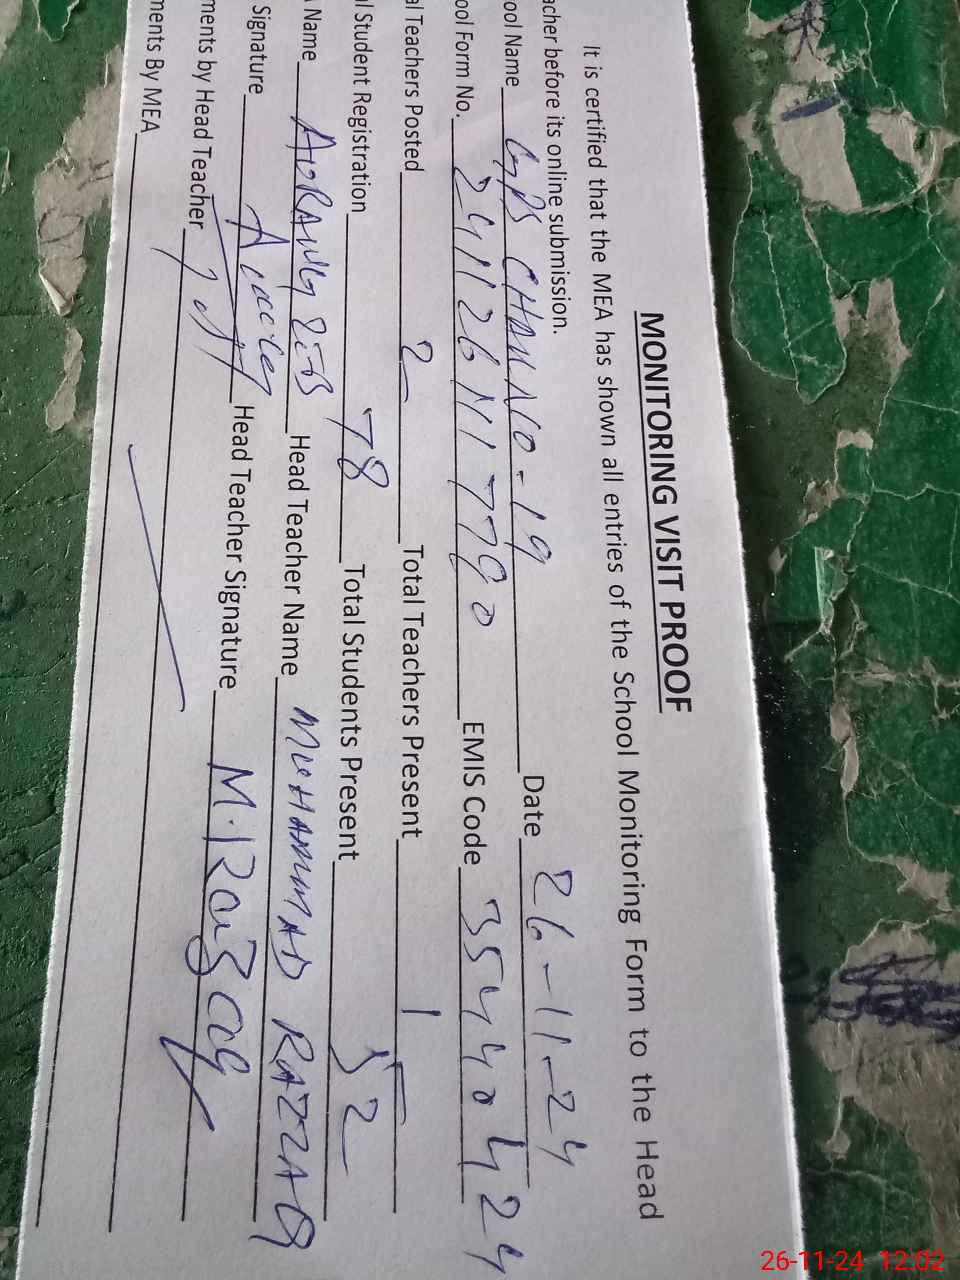 MONITORING VISIT PROOF
It is certified that the MEA has shown all entries of the School Monitoring Form to the Head
acher before its online submission.
ool Name GPS CHAK NO-19 Date 26-11-24
ool Form No. EMIS Code 35440424
al Teachers Posted 2 Total Teachers Present 1
al Student Registration 78 Total Students Present 52
Name AURANGZEB Head Teacher Name MUHAMMAD RAZZAQ
Signature Head Teacher Signature M.Razzaq
ments by Head Teacher
ments By MEA
26-11-24 12:02